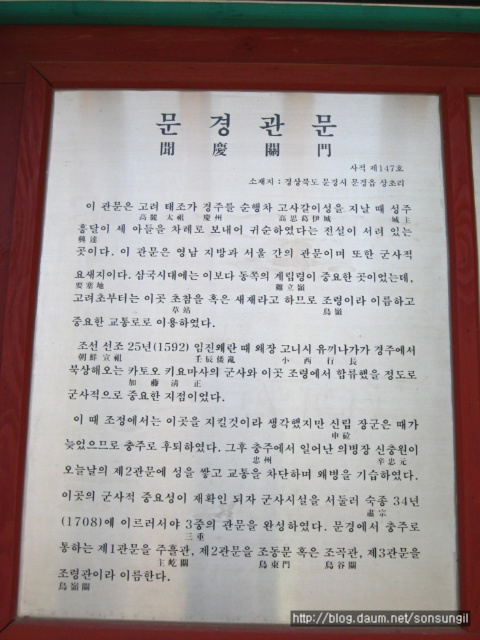 문경관문
聞慶關門
사적 제147호
소재지 : 경상북도 문경시 문경읍 상초리
이 관문은 고려 태조가 경주를 순행차 고사갈이성을 지날 때 성주
高麗 太祖 慶州 高思葛伊城 城主
흥달이 세 아들을 차례로 보내어 귀순하였다는 전설이 서려 있는
興達
곳이다. 이 관문은 영남 지방과 서울 간의 관문이며 또한 군사적
요새지이다. 삼국시대에는 이보다 동쪽의 계립령이 중요한 곳이었는데,
要塞地 鷄立嶺
고려초부터는 이곳 초참을 혹은 새재라고 하므로 조령이라 이름하고
草站 鳥嶺
중요한 교통로로 이용하였다.
조선 선조 25년(1592) 임진왜란 때 왜장 고니시 유끼나가가 경주에서
朝鮮 宣祖 壬辰倭亂 小西行長
북상해오는 카토오 키요마사의 군사와 이곳 조령에서 합류했을 정도로
加藤清正
군사적으로 중요한 지점이었다.
이 때 조정에서는 이곳을 지킬것이라 생각했지만 신립 장군은 때가
申砬
늦었으므로 충주로 후퇴하였다. 그후 충주에서 일어난 의병장 신충원이
忠州 辛忠元
오늘날의 제2관문에 성을 쌓고 교통을 차단하며 왜병을 기습하였다.
이곳의 군사적 중요성이 재확인 되자 군사시설을 서둘러 숙종 34년
肅宗
(1708)에 이르러서야 3중의 관문을 완성하였다. 문경에서 충주로
三重
통하는 제1관문을 주흘관, 제2관문을 조동문 혹은 조곡관, 제3관문을
主屹關 鳥東門 鳥谷關
조령관이라 이름한다.
鳥嶺關
http://blog.daum.net/sonsungil